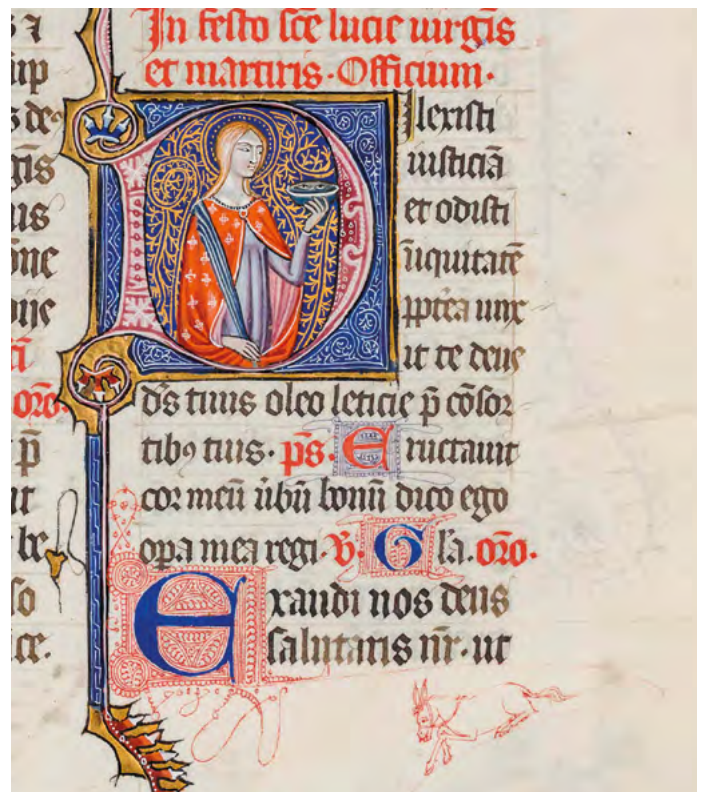 In festo sc̄e lucie uirgīs
et martiris. Officium.
Dilexisti
iusticiā
et odisti
īiquitatē
ꝓpt̄ea unx
it te deus
d̄s tuus oleo leticie p̄ cōsor
tibꝰ tuis. p̄s. Eructauit
cor meū ūbū bonū dico ego
oꝑa mea regi. V̄. Gl̄a. or̄o.
Exaudi nos deus
salutaris nr̄. ut